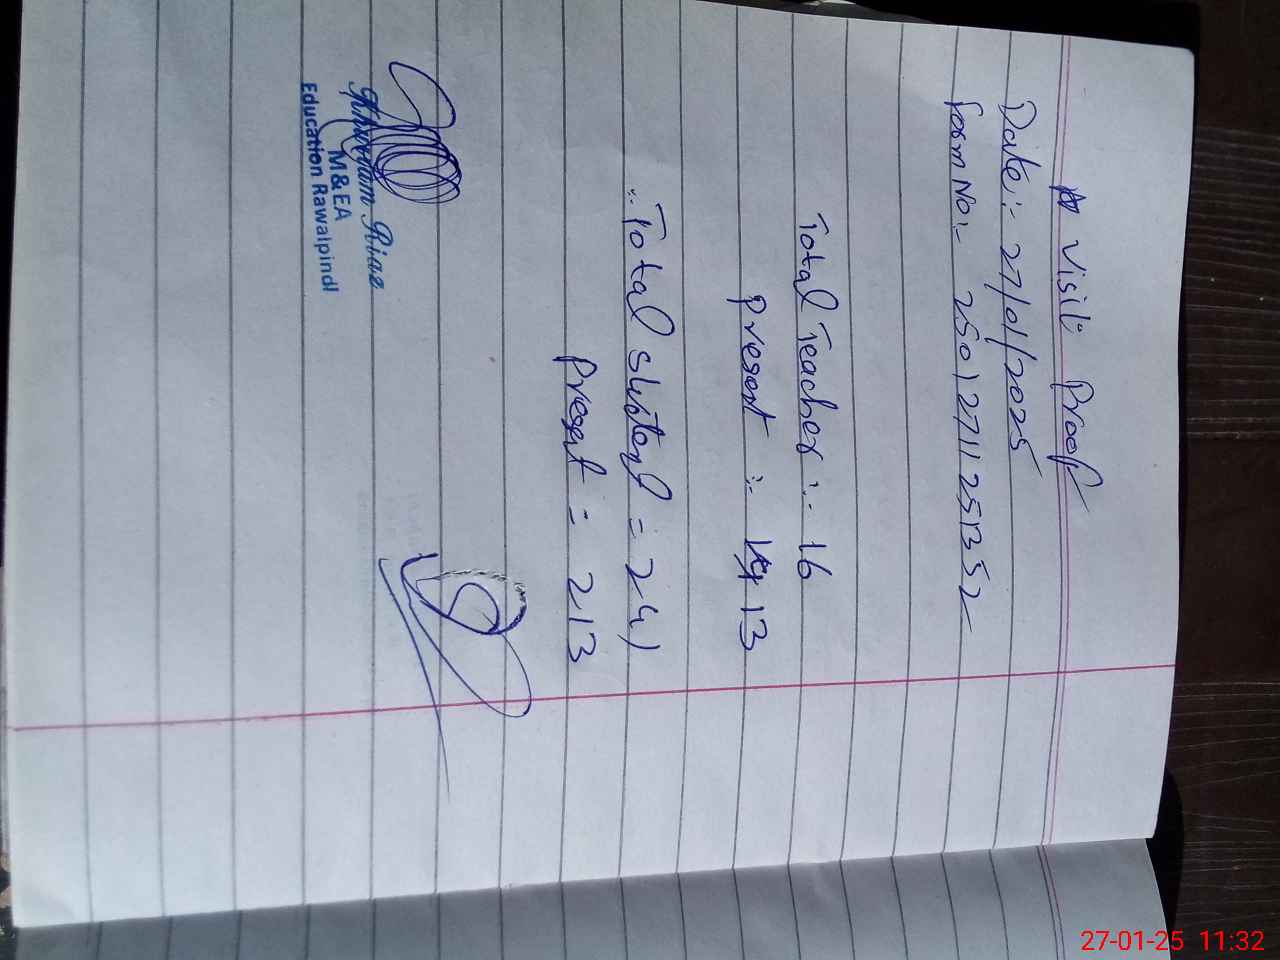 Visit Proof
Date:- 27/01/2025
Form No:- 25012711251352
Total Teacher :- 16
Present :- 13
Total Student = 241
Present = 213
Khurram Riaz
M&EA
Education Rawalpindi
27-01-25 11:32